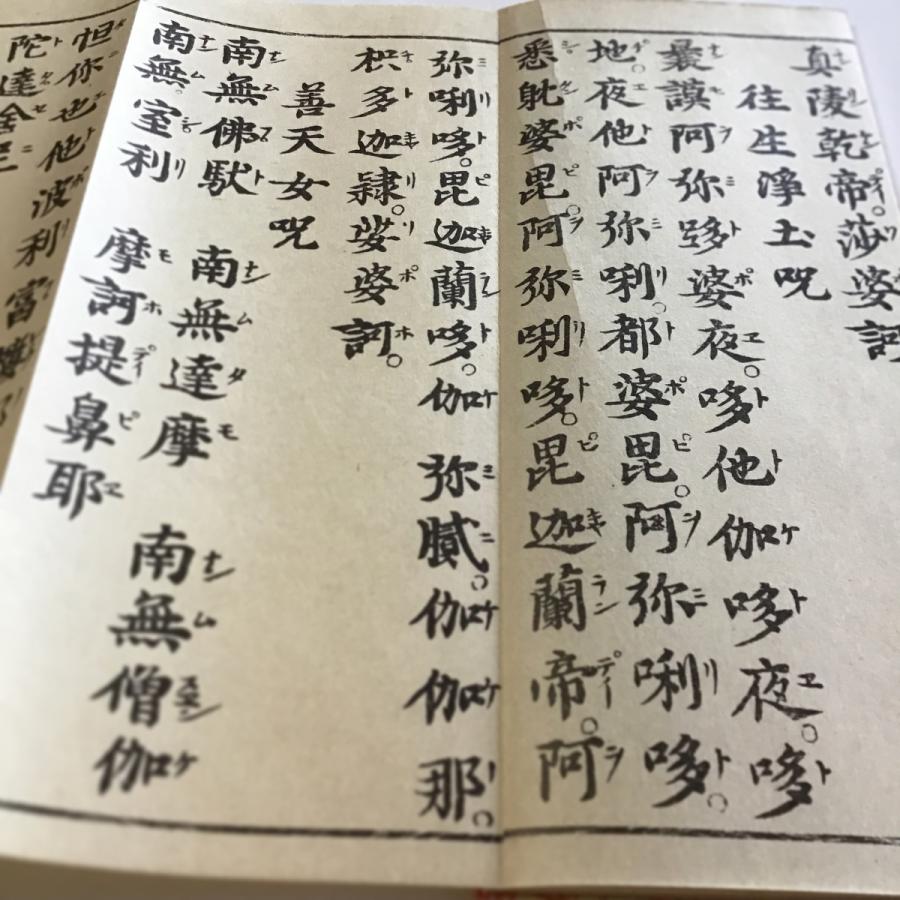 真陵乾帝。莎婆訶
往生淨土呪
曩謨阿弥哆婆夜。哆他伽哆夜。哆
地。夜他阿弥唎。都婆毘。阿弥唎哆。
悉耽婆毘。阿弥唎哆。毘迦蘭帝。阿
弥唎哆。毘迦蘭哆。伽弥膩。伽伽那。
枳多迦隷。娑婆訶。
善天女呪
南無佛馱 南無達摩 南無僧伽
南無室利 摩訶提鼻耶
怛你也他波利富
陀達舍